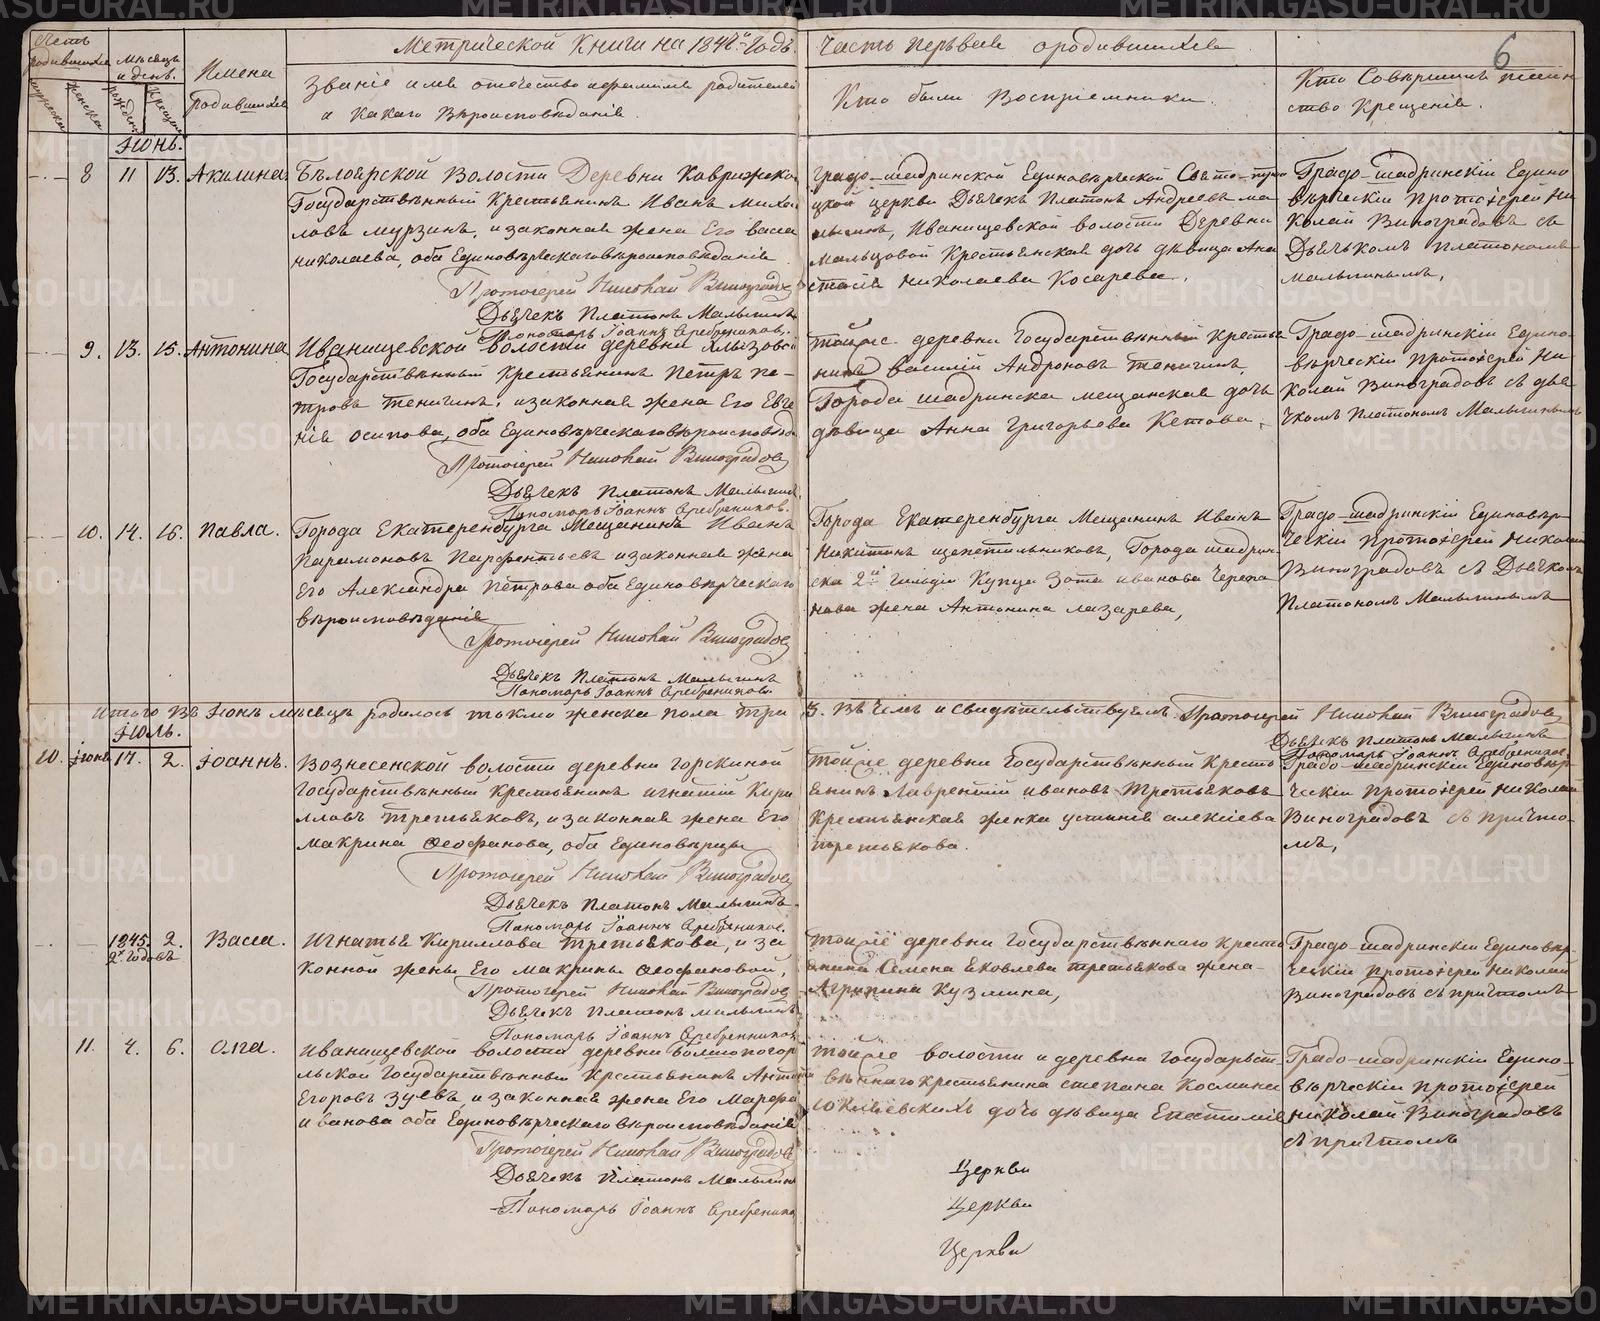 Метрической Книги на 1847й Годъ.
Часть первая о родившихся
6
Счетъ родившихся
мужеска
женска
Мѣсяцъ и день.
рожден
крещен
Имена родившихся
Званіе имя отчество и фамилія родителей
и какаго вѣроисповѣданія
Кто были Воспріемники.
Кто Совѣршилъ таин
ство Крещенія.
Іюнь.
8 11 13. Акилина.
Бѣлоярской Волости Деревни Коврижско
Государствѣнный Крестьянинъ Иванъ Михаи
ловъ Мурзинъ, и законная жена Его Васса
Николаева, оба Единовѣрческаго вѣроисповѣданія
Протоіерей Николай Виноградовъ
Дьячекъ Платонъ Малыгинъ
Пономарь Іоаннъ Серебренниковъ.
Градо-шадринской Единовѣрческой Свято-трои
цкой церкви Дьячекъ Платонъ Андреевъ ма
лыгинъ, Иванищевской волости Деревни
Мальцовой Крестьянская дочь дѣвица Ана
стасія Николаева Косарева.
Градо-шадринскій Едино
вѣрческій Протоіерей Ни
колай Виноградовъ съ
Дьячькомъ Платономъ
Малыгинымъ,
9. 13. 15. Антонина
Иванищевской волости деревни
Государствѣнный Крестьянинъ Петръ Пе-
тровъ Тенигинъ, и законная жена Его Евге
нія Осипова, оба Единовѣрческаго вѣроисповѣда
Протоіерей Николай Виноградовъ
Дьячекъ Платонъ Малыгинъ
Пономарь Іоаннъ Серебренниковъ.
Тойже деревни Государствѣнный Крестья
нинъ Василій Андроновъ Тенигинъ,
Города шадринска мещанская дочь
дѣвица Анна Григорьева Кетова.
Градо-шадринскій Едино-
вѣрческій Протоіерей Ни
колай Виноградовъ съ дья
чкомъ Платономъ Малыгинымъ
10. 14. 16. Павла.
Города Екатеренбурга Мещанинъ Иванъ
Парамоновъ Парфентьевъ и законная жена
Его Александра Петрова оба Единовѣрческаго
вѣроисповѣданія
Протоіерей Николай Виноградовъ
Дьячекъ Платонъ Малыгинъ
Пономарь Іоаннъ Серебренниковъ
Города Екатеренбурга Мещанинъ Иванъ
Никитинъ щепетильниковъ, Города шадрин
ска 2й гильдіи Купца Зота Иванова Черепа
нова жена Антонина Лазарева,
Градо-шадринскій Единовѣр-
ческій Протоіерей Николай
Виноградовъ съ Дьячкомъ
Платономъ Малыгинымъ
Итого въ Іюнѣ мѣсяцѣ родилось токмо женска пола три
3. Въ чемъ и свидѣтельствуемъ Протоіерей Николай Виноградовъ
Дьячекъ Платонъ Малыгинъ
Пономарь Іоаннъ Серебренниковъ.
Іюль.
10. Іюня 17. 2. Іоаннъ.
Вознесенской волости деревни Горскиной
Государствѣнный крестьянинъ Игнатій Кири
лловъ Третьяковъ, и законная жена Его
Макрина Ѳеофанова, оба Единовѣрцы
Протоіерей Николай Виноградовъ
Дьячекъ Платонъ Малыгинъ.
Пономарь Іоаннъ Серебренниковъ.
Тойже деревни Государствѣнный Кресть
янинъ Лаврентій Ивановъ Третьяковъ
Крестьянская женка Устинія Алексіева
Третьякова.
Градо-шадринскій Единовѣр-
ческій Протоіерей Николай
Виноградовъ съ причто-
мъ,
1845. 2. Васса.
2х годовъ
Игнатья Кирилова Третьякова, и за
конной жены Его Макрины Ѳеофановой,
Протоіерей Николай Виноградовъ
Дьячекъ Платонъ Малыгинъ
Пономарь Іоаннъ Серебренниковъ
Тойже деревни Государствѣннаго Кресть
янина Семена Яковлева Третьякова жена
Агрипина Кузмина,
Градо-шадринскій Единовѣр-
ческій Протоіерей Николай
Виноградовъ съ причтомъ
11. 4. 6. Олга.
Иванищевской волости деревни Большопогор
льской Государствѣнный Крестьянинъ Антонъ
Егоровъ Зуевъ и законная жена Его Марфа
Иванова оба Единовѣрческаго вѣроисповѣданія
Протоіерей Николай Виноградовъ
Дьячекъ Платонъ Малыгинъ
Пономарь Іоаннъ Серебренников
Тойже волости и деревни Государьст
вѣннаго крестьянина Степана Космина
дочь дѣвица Епатимія
Градо-шадринскій Едино-
вѣрческій Протоіерей
Николай Виноградовъ
съ причтомъ
Церкви
Церкви
Церкви
METRIKI.GASO-URAL.RU